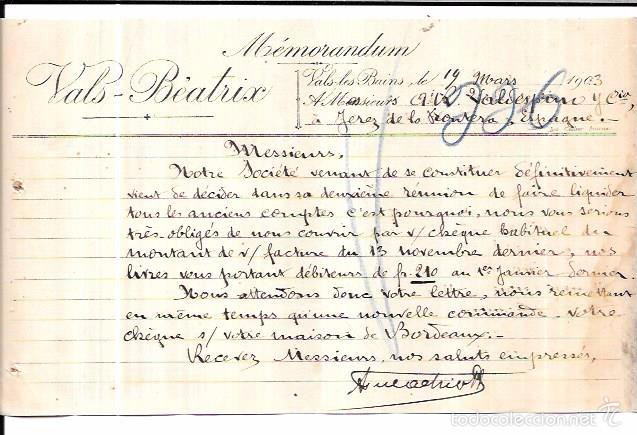 Mémorandum
Vals-Béatrix
Vals-les-Bains, le 19 Mars 1903
A Messieurs Valdespino y Cia,
à Jerez de la Frontera. Espagne.
Messieurs,
Notre Société venant de se constituer définitivement
vient de décider dans sa deuxième réunion de faire liquider
tous les anciens comptes c'est pourquoi, nous vous serions
très-obligés de nous couvrir par v/ chèque habituel du
montant de v/ facture du 13 novembre dernier, nos
livres vous portant débiteurs de fr. 210 au 1er Janvier dernier.
Nous attendons donc votre lettre, nous remettant
en même temps qu'une nouvelle commande votre
chèque s/ votre maison de Bordeaux.-
Recevez Messieurs, nos saluts empressés,
todocoleccion